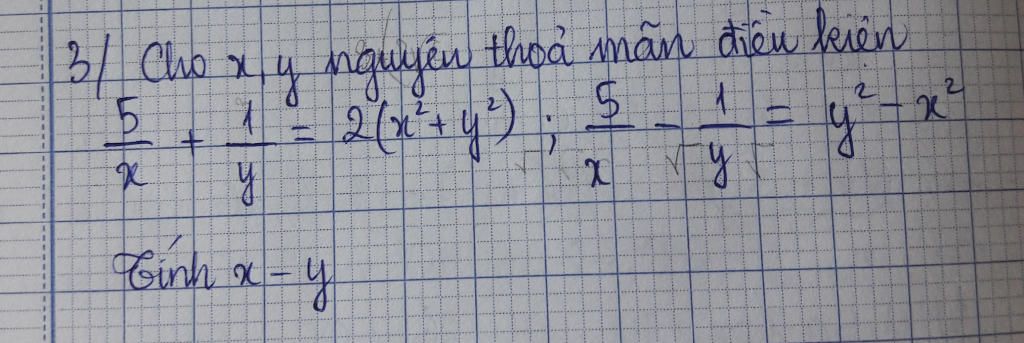 3/ Cho x, y nguyên thoả mãn điều kiện
5/x + 1/y = 2(x² + y²) ; 5/x - 1/y = y² - x²
Tính x - y